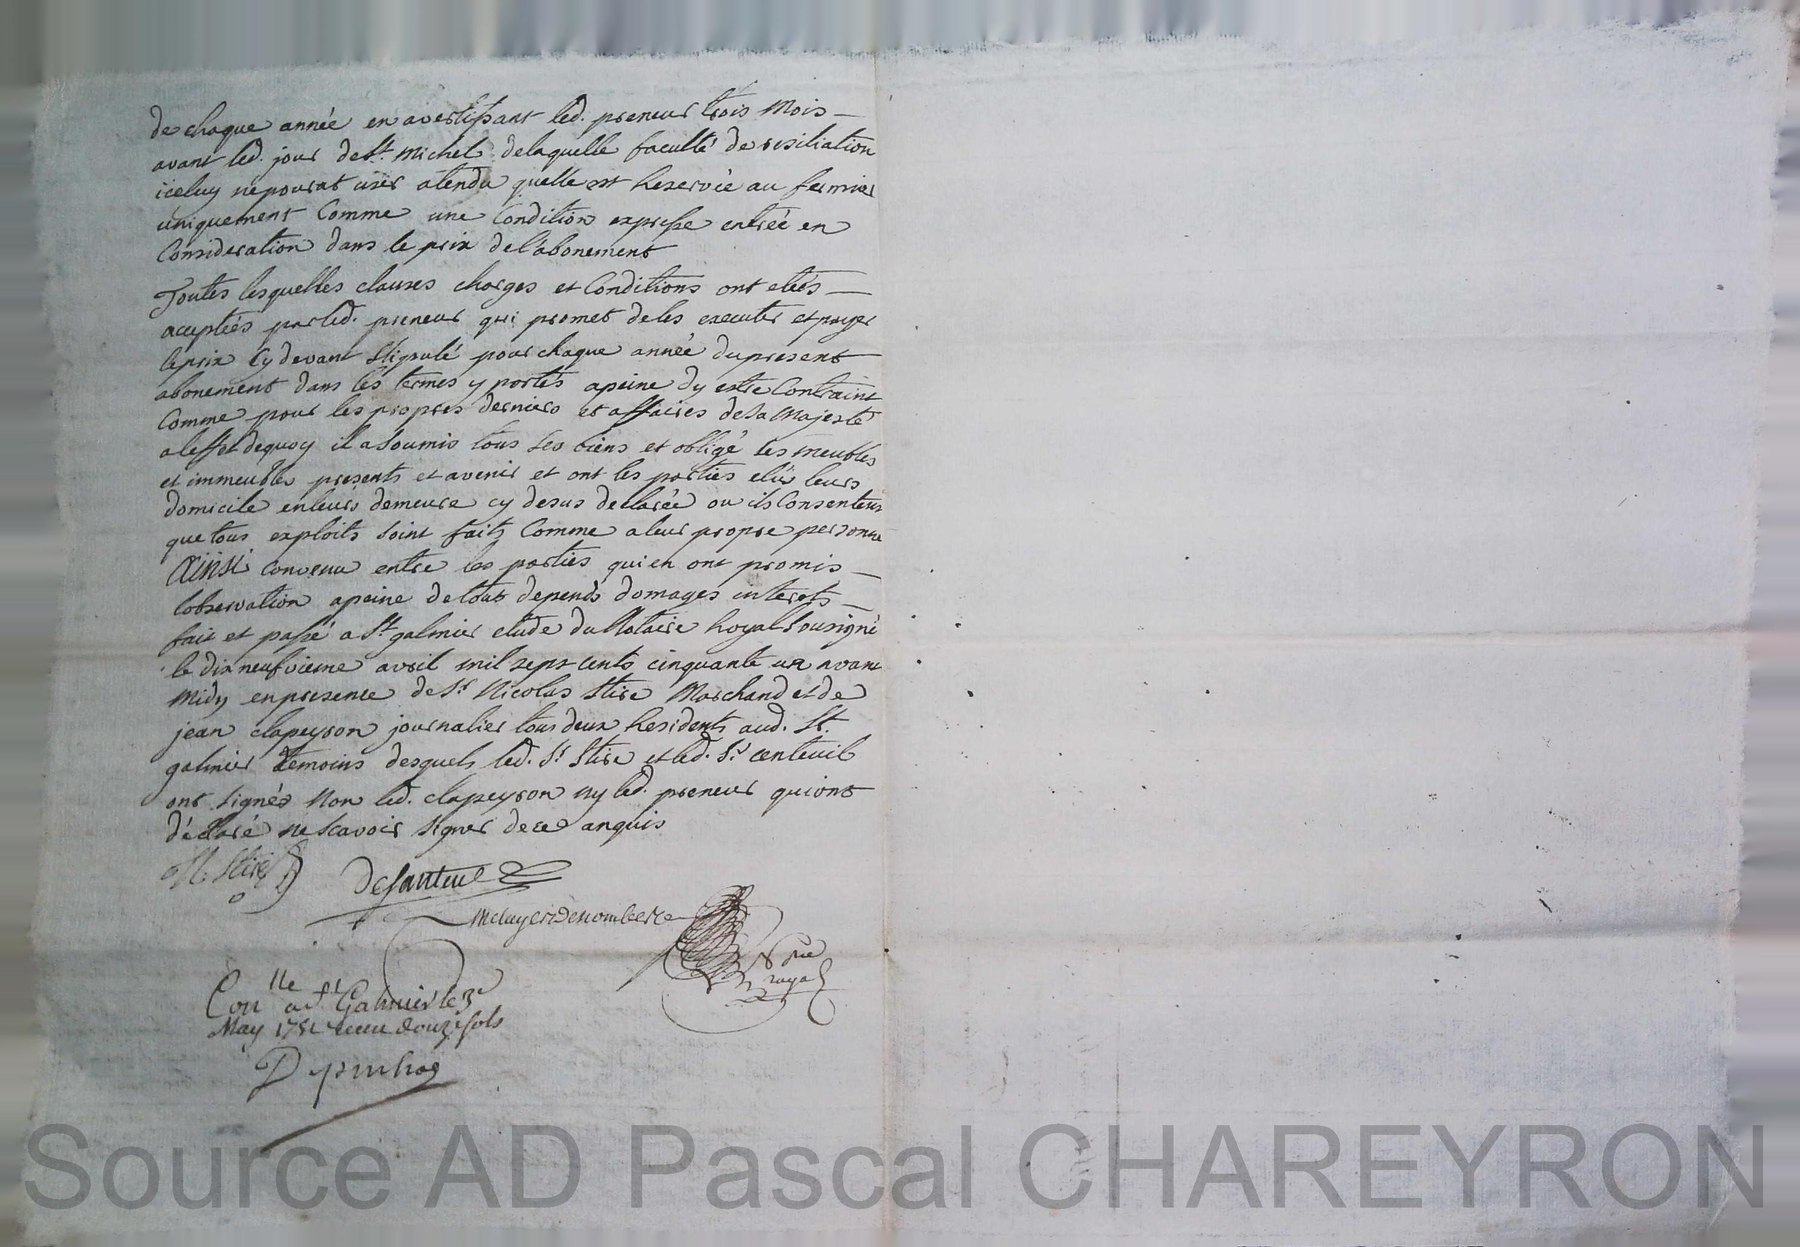 de chaque année en avertissant led. preneur trois mois
avant led. jour de St. Michel delaquelle faculté de resiliation
iceluy nepourat user atendu quelle est Reservée au fermier
uniquement Comme une Condition expresse entrée en
Consideration dans le prix del'abonement
Toutes lesquelles clauses charges et Conditions ont etés
aceptées parled. preneur qui promet deles executer et payer
leprix Cy devant stipulé pour chaque année dupresent
abonement dans les termes y portés apeine dy estre Contraint
Comme pour les propres derniers et affaires desa Majesté
aleffet dequoy il asoumis tous ses biens et obligé ses meubles
et immeubles presents et avenir et ont les parties elus leurs
domicile enleurs demeure cy desus declarée ou ils Consentent
que tous exploits soint faits Comme aleur propre personne
Ainsi convenu entre les parties qui en ont promis
lobservation apeine detous depends domages interets
fait et passé a St. galmier etude du Notaire Royal Sousigné
le dixneufvieme avril mil sept cents cinquante un avant
midy enpresence de Sr. Nicolas Stire Marchand et de
jean clapeyron journalier tous deux Residents aud. St.
galmier temoins desquels led. Sr. Stire et led. Sr. centeuil
ont signés Non led. clapeyron ny led. preneur quiont
déclaré ne scavoir signer dece enquis
N. Stire
Desanteul
nre
royal
Conlle a St Galmier le 3e
May 1751 receu douze sols
Source AD Pascal CHAREYRON